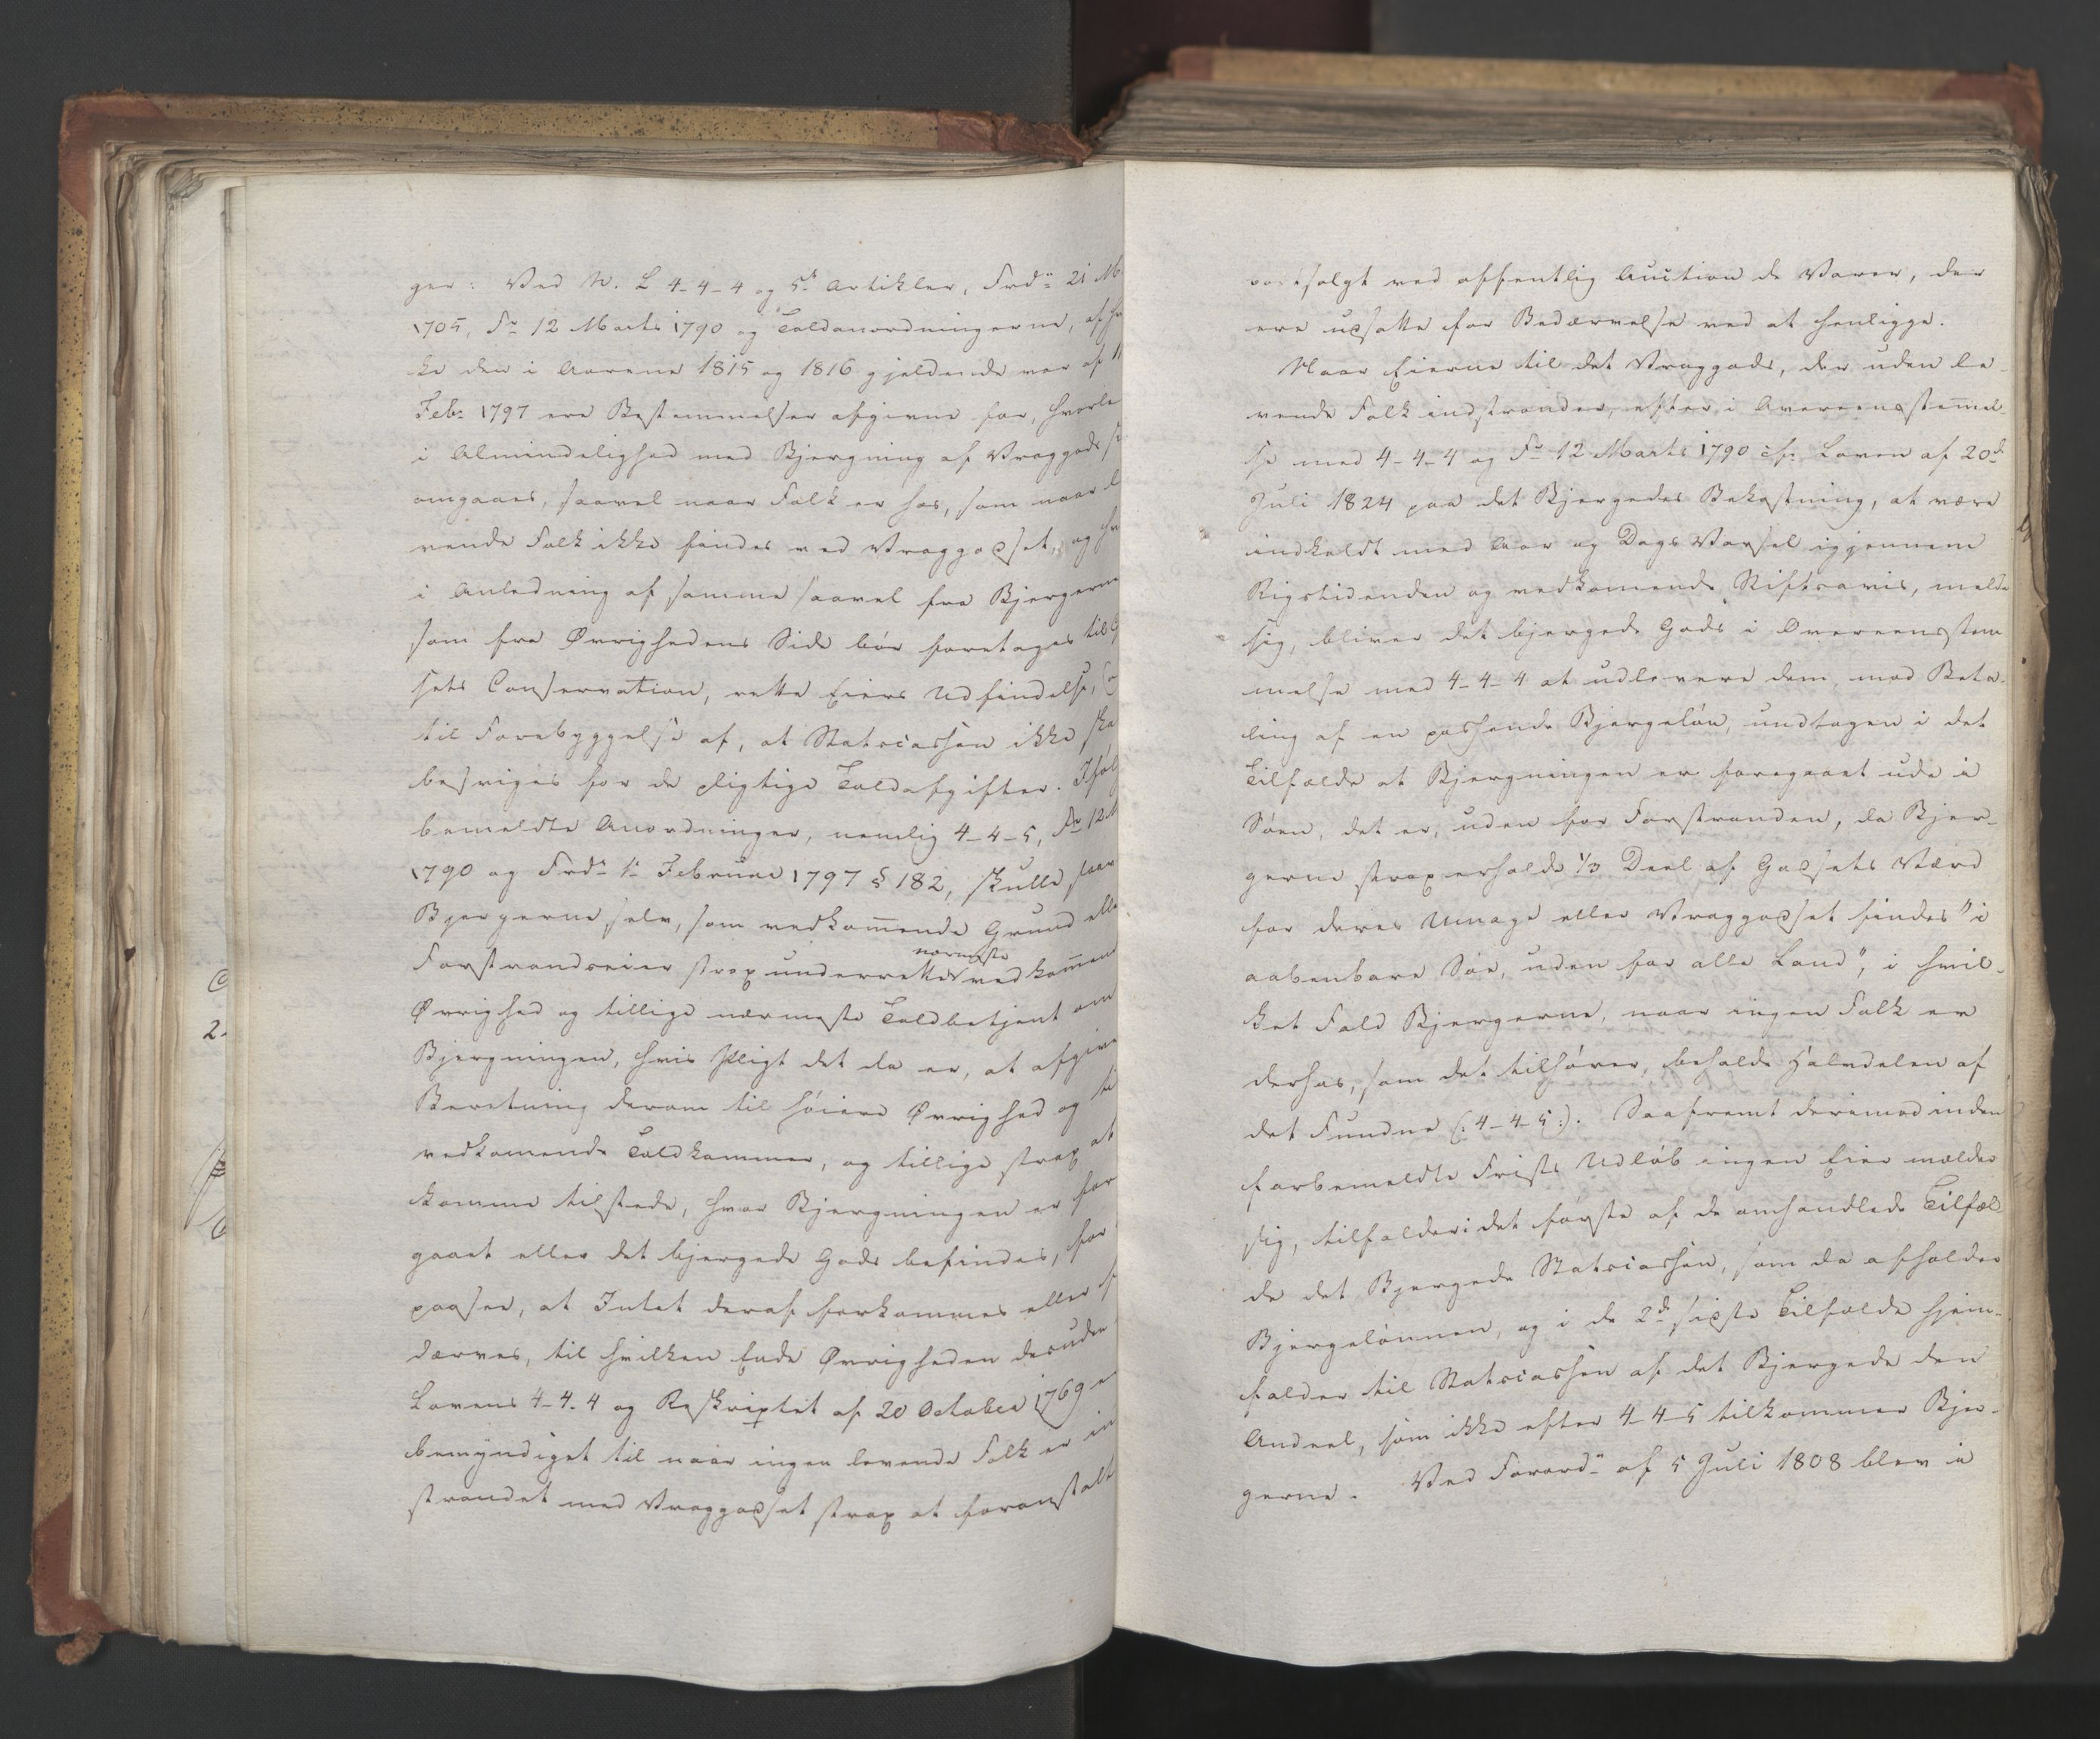 ger: Ved N. L 4-4-4 og 5te Artikler, Frdn 21 M
1705, Fr 12 Marts 1790 og Toldanordningerne, af hv
ke den i Aarene 1815 og 1816 gjeldende var af 1
Febr 1797 ere Bestemmelser afgivne for, hvorle
i Almindelighed med Bjergning af Vraggods s
omgaaes, saavel naar Folk er hos, som naar le
vende Folk ikke findes ved Vraggodset, og hv
i Anledning af samme saavel fra Bjergerne
som fra Øvrighedens Side bør foretages til G
sets Conservation, rette Eiers Udfindelse, o
til Forebyggelse af, at Statscassen ikke ska
besviges for de pligtige Toldafgifter. Ifølg
bemeldte Anordninger, nemlig 4-4-5, Fr 12 M
1790 og Frdn 1 Februar 1797 § 182, skulle saav
Bjergerne selv, som vedkommende Grund elle
nærmeste
Forstrandseier strax underrette vedkommend
Øvrighed og tillige nærmeste Toldbetjent om
Bjergningen, hvis Pligt det da er, at afgive
Beretning derom til høiere Øvrighed og ti
vedkomende Toldkammer, og tillige strax at
komme tilstede, hvor Bjergningen er for
gaaet eller det bjergede Gods befindes, for
paasee, at Intet deraf forkommes eller f
dærves, til hvilken Ende Øvrigheden desuden
Lovens 4-4-4 og Reskriptet af 20 October 1769 e
bemyndiget til naar ingen levende Folk er in
strandet med Vraggodset strax at foranstalt
bortsolgt ved offentlig Auction de Varer, der
ere udsatte for Bedærvelse ved at henligge.
Naar Eierne til det Vraggods, der uden le-
vende Folk indstrander, efter i Overeensstemmel-
se med 4-4-4 og Fr 12 Marts 1790 cfr Loven af 20de
Juli 1824 paa det Bjergedes Bekostning, at være
indkaldt med Aar og Dags Varsel igjennem
Rigstidenden og vedkomende Stiftsavis, melde
sig, bliver det bjergede Gods i Overeensstem
melse med 4-4-4 at udlevere dem, mod Beta-
ling af en passende Bjergeløn, undtagen i det
Tilfælde at Bjergningen er foregaaet ude i
Søen, det er, uden for Forstranden, da Bjer-
gerne strax erholde 1/3 Deel af Godsets Værd
for deres Umage eller Vraggodset findes "i
aabenbare Søe, uden for alle Land", i hvil-
ket Fald Bjergerne, naar ingen Folk er
derhos, som det tilhører, beholde Halvdelen af
det Fundne (: 4-4-5 :). Saafremt derimod inden
forbemeldte Frists Udløb ingen Eier melder
sig, tilfalder i det første af de omhandlede Tilfæl-
de det Bjergede Statscassen, som da afholder
Bjergelønnen, og i de 2de sidste Tilfælde hjem-
falder til Statscassen af det Bjergede den
Andeel, som ikke efter 4-4-5 tilkommer Bjer-
gerne. Ved Forordn af 5 Juli 1808 blev i